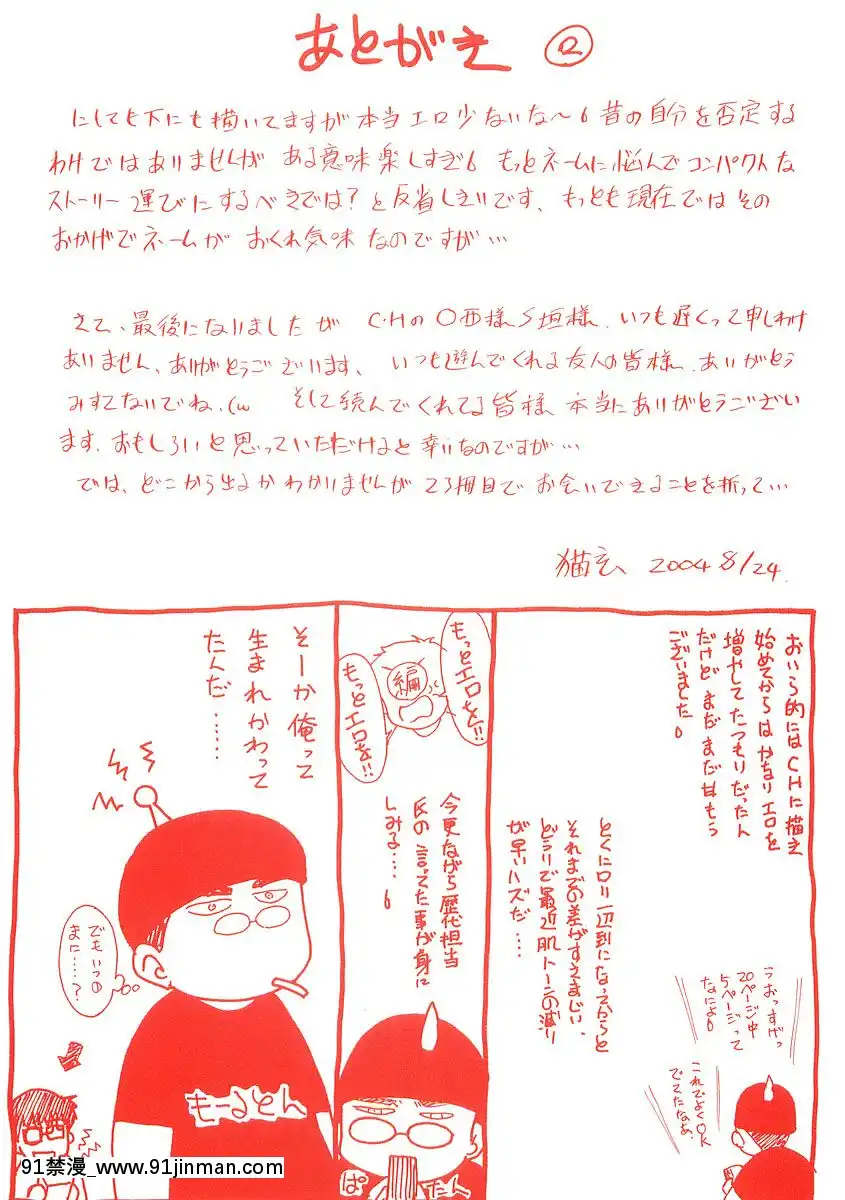 あとがき ②
にしても下にも描いてますが本当エロ少ないな〜6 昔の自分を否定する
わけではありませんが ある意味楽しすぎ6 もっとネームに悩んでコンパクトな
ストーリー運びにするべきでは?と反省しきりです、もっとも現在ではその
おかげでネームが おくれ気味なのですが…
さて、最後になりましたが C・Hの〇西様 S垣様、いつも遅くって申しわけ
ありません、ありがとうございます、いつも遊んでくれる友人の皆様、ありがとう
みすてないでね、(w そして読んでくれてる皆様 本当にありがとうござい
ます、おもしろいと思っていただけると幸いなのですが…
では、どこから出るかわかりませんが 23冊目で お会いできることを祈って…
猫玄 2004 8/24.
おいら的にはCHに描き
始めてからはかなりエロを
増やしてたつもりだったん
だけど まだまだ甘もう
ございました6
うおっすげっ
20ページ中
5ページって
なによ6
これでよくOK
でてたなあ、
とくにロリ一辺到になってからと
それまでの差がすさまじい、
どうりで最近肌トーンの減り
が早いハズだ…
もっとエロを!!
編
もっとエロを!!
今更ながら歴代担当
氏の言ってた事が身に
しみる…… 6
ぱたん
そーか俺って
生まれかわって
たんだ……
でもいつの
まに……?
もーるとん
91禁漫_www.91jinman.com_